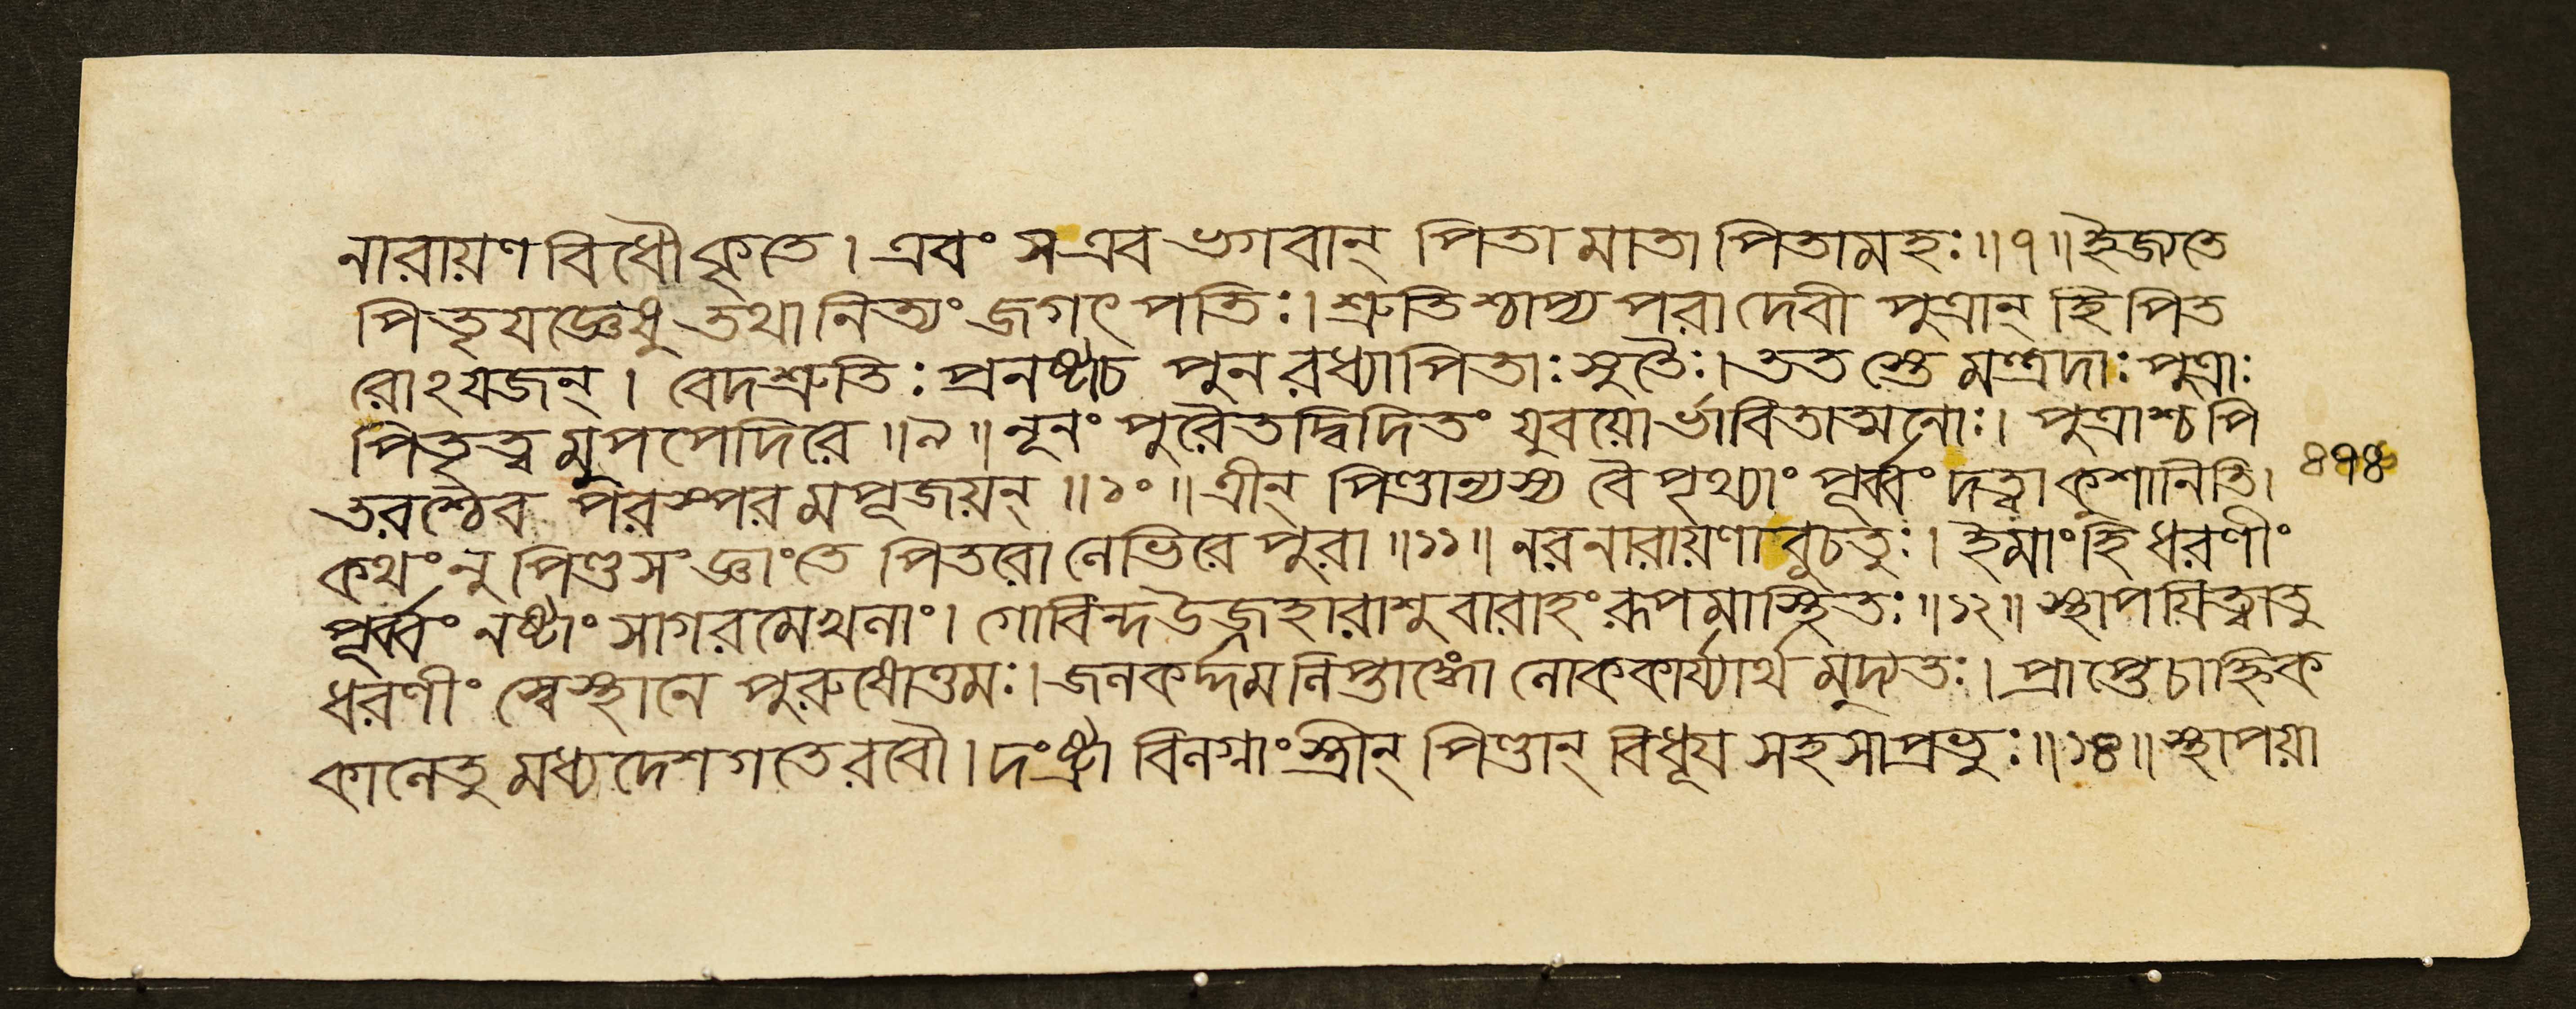 নারায়ণ বিধৌ কৃতে। এবং স এব ভগবান্ পিতা মাতা পিতামহঃ॥৭॥ ইজ্যতে
পিতৃযজ্ঞেষু তথা নিত্যং জগৎপতিঃ। শ্রুতিশ্চাপ্য পরা দেবী পুত্রান্ হি পিত
রোঽযজন্। বেদশ্রুতিঃ প্রনষ্টাচ পুনরধ্যাপিতাঃ সুতৈঃ। ততস্তে মন্ত্রদাঃ পুত্রাঃ
পিতৃত্ব মুপপেদিরে॥৯॥ নূনং পুরৈতদ্বিদিতং যুবয়োর্ভাবিতাত্মনোঃ। পুত্রাশ্চ পি
তরশ্চৈব পরস্পর মপূজয়ন্॥১০॥ ত্রীন্ পিণ্ডান্যস্য বৈ পৃথ্যাং পূর্ব্বং দত্ত্বা কুশানিতি।
৪৭৪
কথং নু পিণ্ডসংজ্ঞাংতে পিতরো লেভিরে পুরা॥১১॥ নরনারায়ণাবুচতুঃ। ইমাংহি ধরণীং
পূর্ব্বং নষ্টাং সাগরমেখলাং। গোবিন্দ উজ্জহারাশু বারাহং রূপমাস্থিতঃ॥১২॥ স্থাপয়িত্বাতু
ধরণীং স্বেস্থানে পুরুষোত্তমঃ। জলকর্দ্দমলিপ্তাঙ্গো লোককার্য্যার্থ মুদ্যতঃ। প্রাপ্তেচাহ্নিক
কালেতু মধ্যদেশগতেরবৌ। দংষ্ট্রা বিলগ্নাংস্ত্রীন্ পিণ্ডান্ বিধূয সহসাপ্রভুঃ॥১৪॥ স্থাপয়া